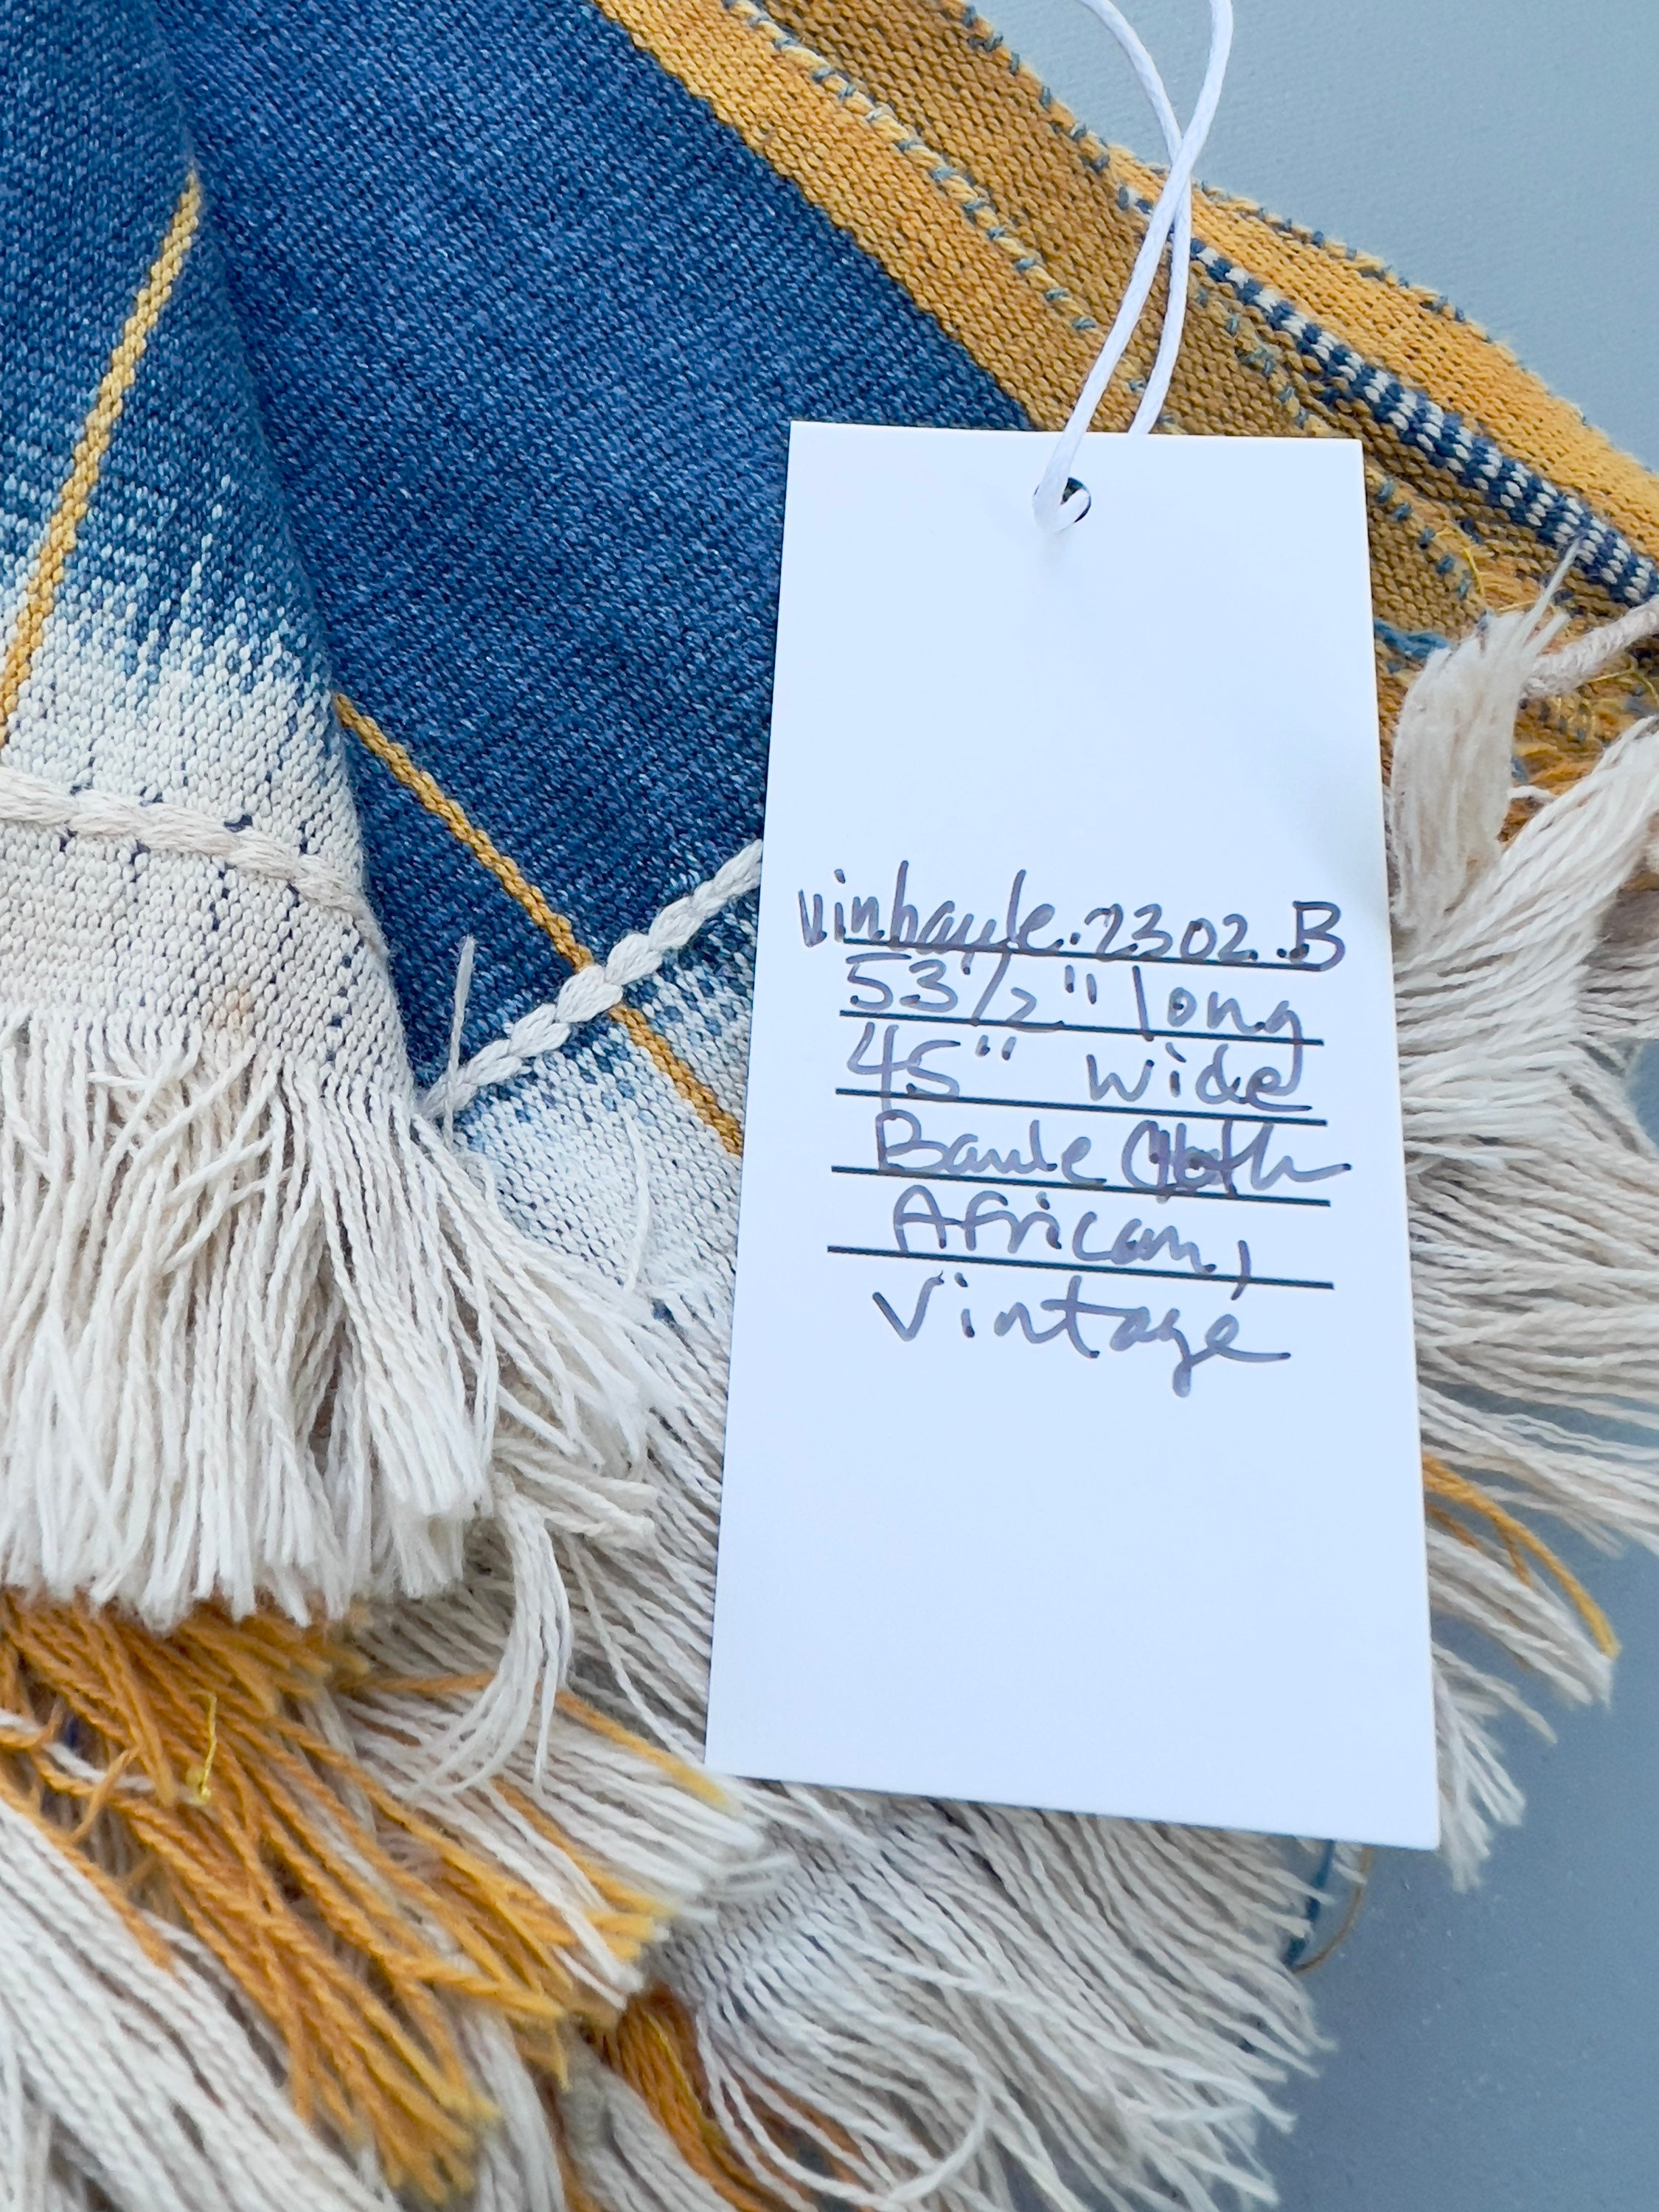 vinhayle.2302.B
53 1/2" long
45" wide
Baule Cloth
African,
Vintage